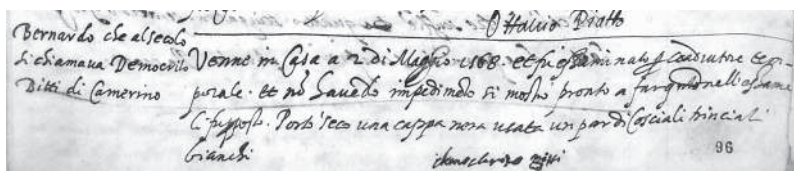 Ottavio Piatto
Bernardo che al secolo
si chiamava Democrito
Bitti di Camerino
Venne in Casa a 2 di Maggio 1568. et fu essaminato p coadiutore te-
porale. et nō havēdo impedimēto si mostrò pronto a far quāto nell'essame
li fu posto. Portò seco una cappa nera usata un par di Cosciali trinciati
bianchi
96